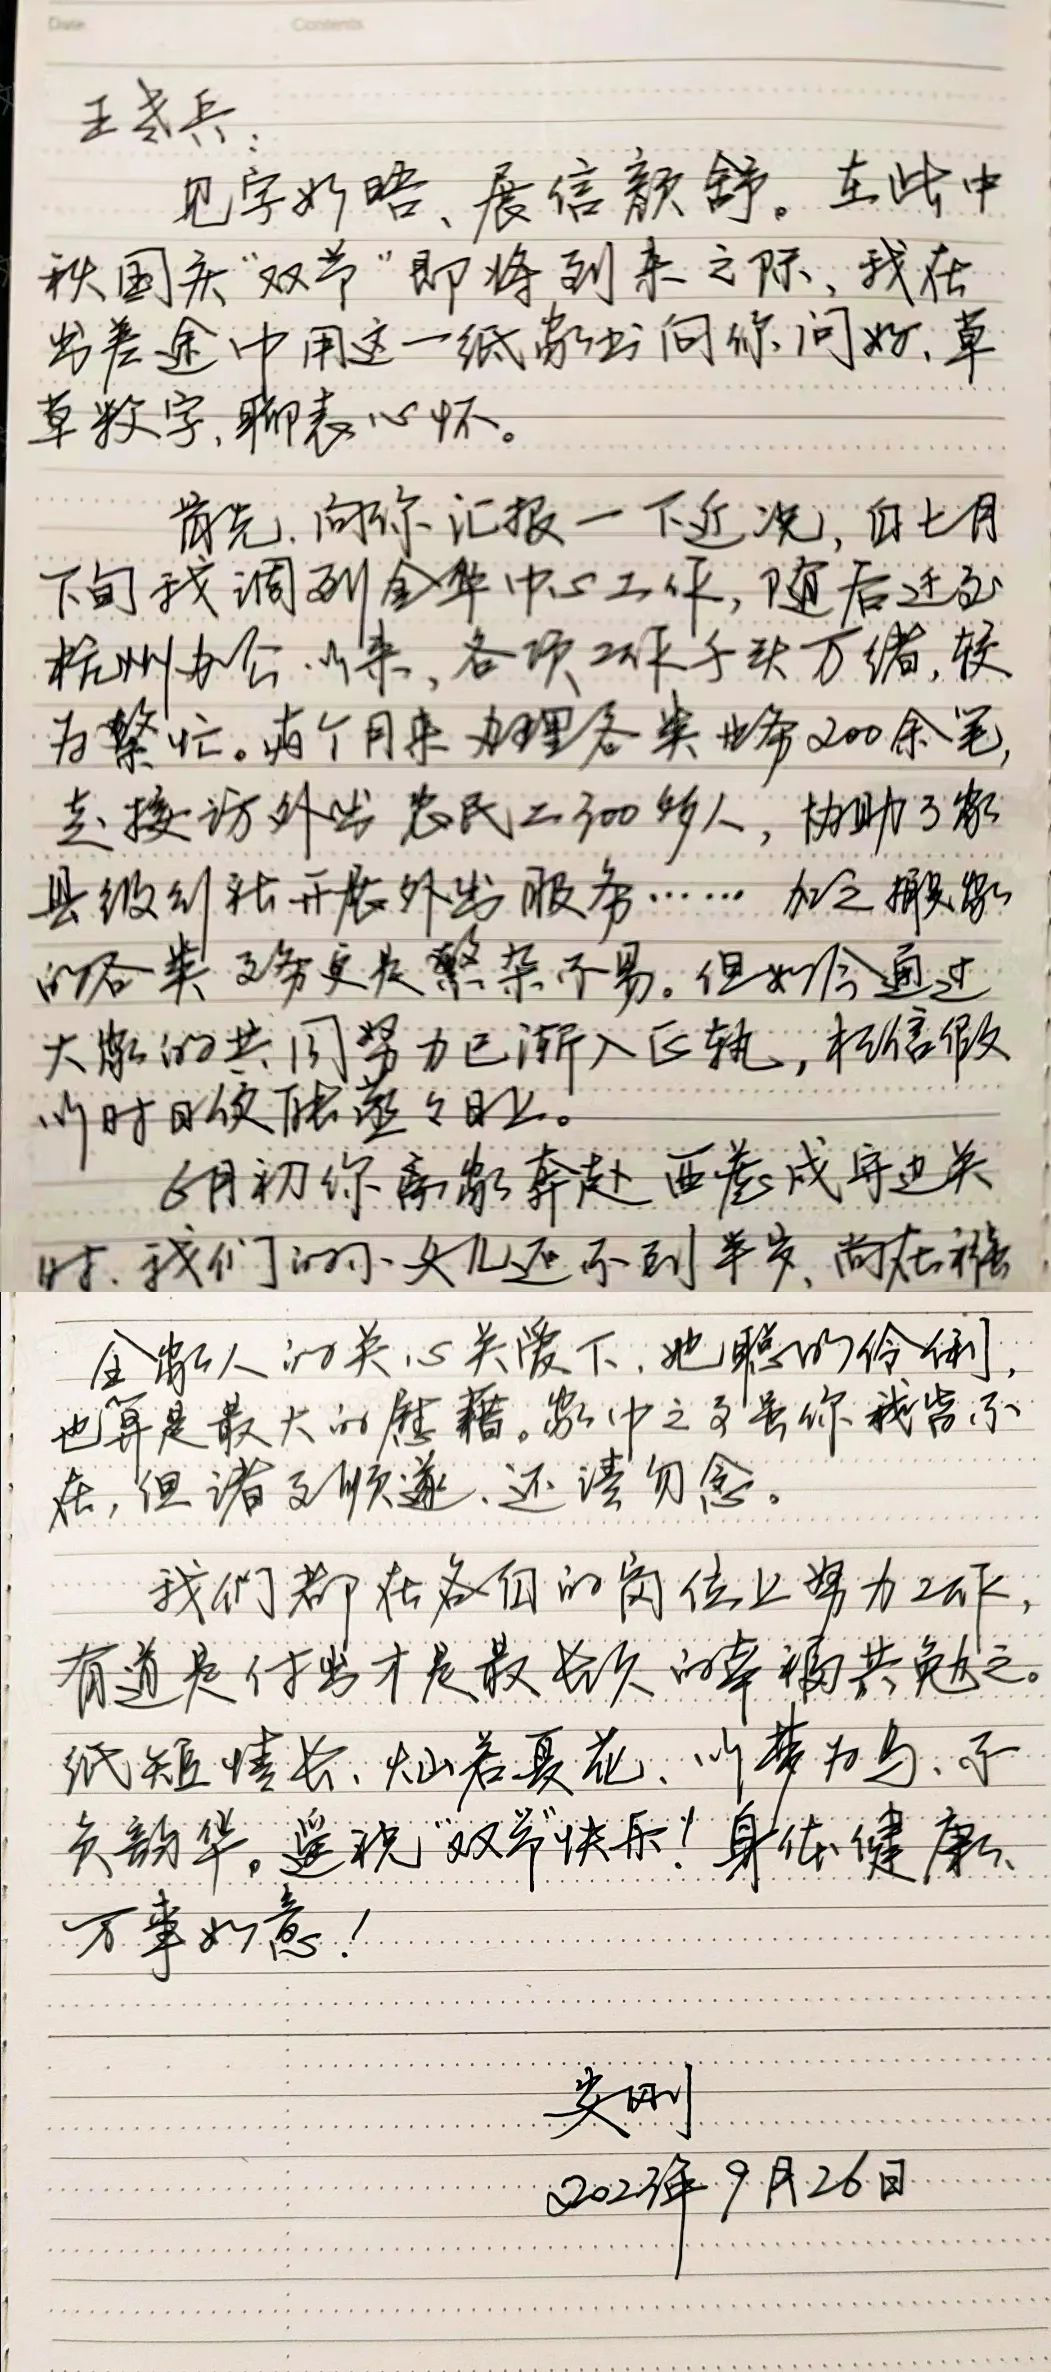 Date Contents
王老兵：
见字如晤、展信颜舒。在此中
秋国庆“双节”即将到来之际、我在
出差途中用这一纸家书向你问好、草
草数字、聊表心怀。
首先、向你汇报一下近况，自七月
下旬我调到金华中心工作，随后迁至
杭州办公以来、各项工作千头万绪，较
为繁忙。两个月来办理各类业务200余笔，
走接访外出农民工300多人，协助3家
县级到社开展外出服务…… 加之搬家
的各类事务更是繁杂不易。但如今通过
大家的共同努力已渐入正轨，相信假
以时日便能蒸々日上。
6月初你离家奔赴西藏戍守边关
时、我们的小女儿还不到半岁、尚在襁
全家人的关心关爱下、她聪明伶俐，
也算是最大的慰藉。家中之事虽你我皆不
在，但诸事顺遂、还请勿念。
我们都在各自的岗位上努力工作，
有道是付出才是最长久的幸福共勉之。
纸短情长、灿若夏花、以梦为马、不
负韶华。遥祝“双节”快乐！身体健康、
万事如意！
2023年9月26日